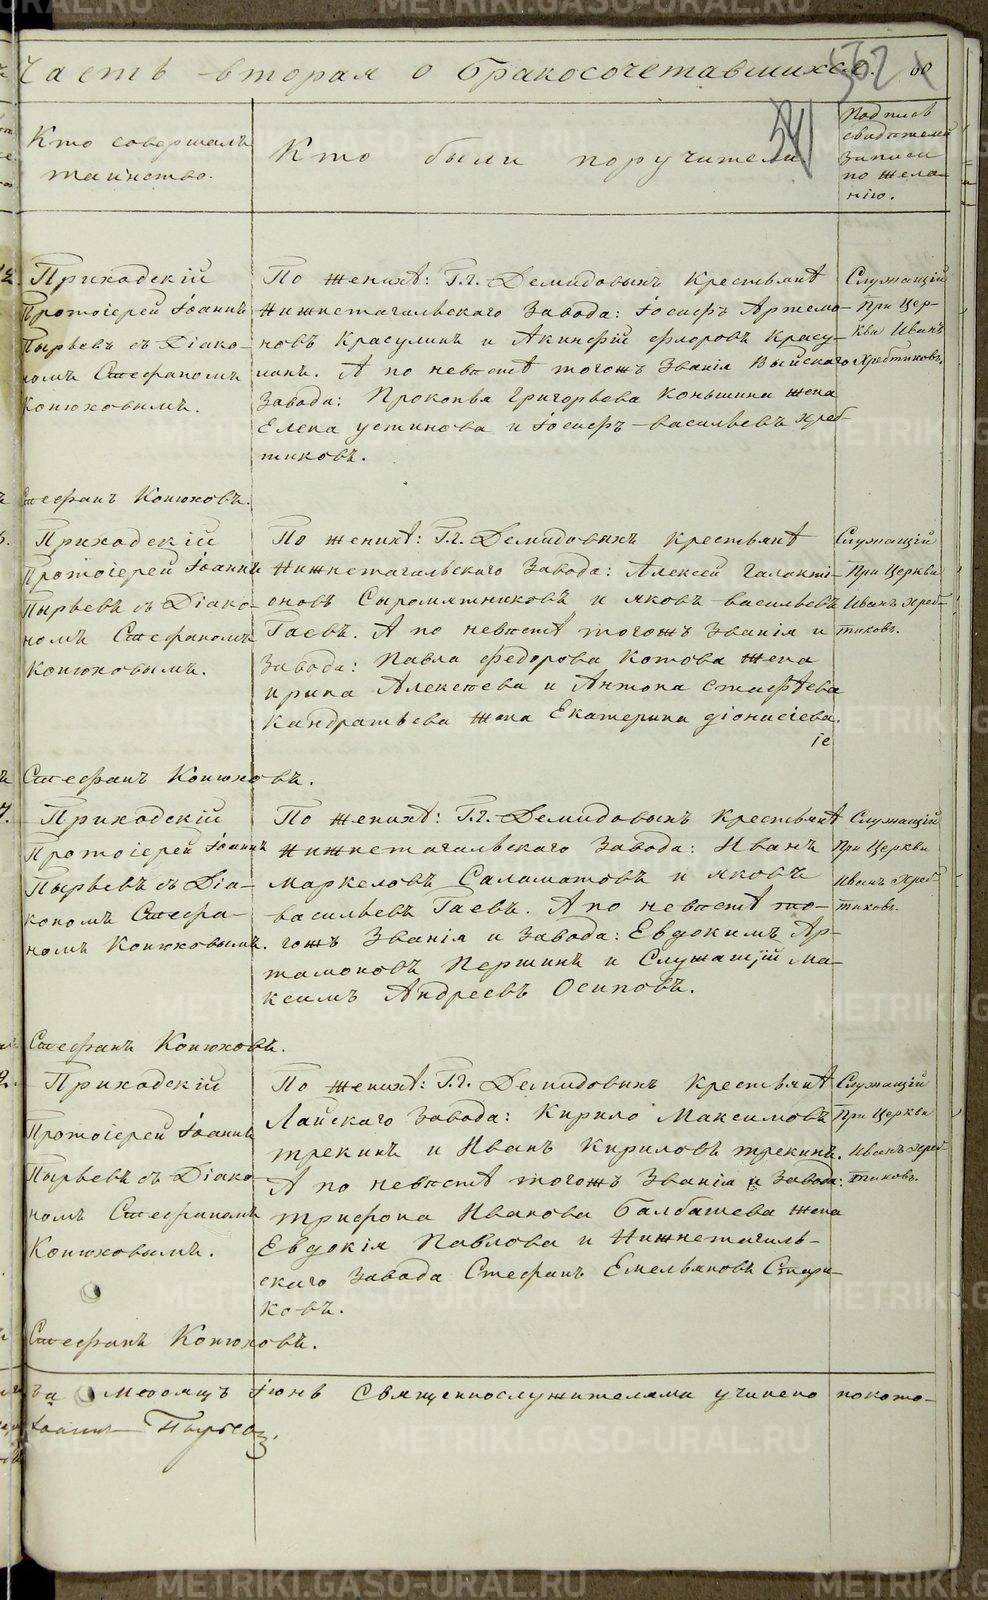 Часть вторая о бракосочетавшихся.
562
541
Кто совершалъ
таинство.
Кто были поручители.
Подписъ
свидѣтелей
записи
по жела-
нію.
Приходскій
Протоіерей Іоаннъ
Пырьевъ съ Діако-
номъ Стефаномъ
Конюховымъ.
По женихѣ: Г.г. Демидовыхъ крестьянѣ
Нижнетагильскаго Завода: Іосифъ Артемо-
новъ Красулинъ и Акинфій флоровъ Красу-
линъ. А по невѣстѣ тогожъ Званія Выйскаго
Завода: Прокопья Григорьева Коньшина жена
Елена устинова и Іосифъ васильевъ хреб-
тиковъ.
Служащій
При Цер-
кви Иванъ
Хребтиковъ.
Стефанъ Конюховъ.
Приходскій
Протоіерей Іоаннъ
Пырьевъ съ Діако-
номъ Стефаномъ
Конюховымъ.
По женихѣ: Г.г. Демидовыхъ крестьянѣ
Нижнетагильскаго Завода: Алексей галакті-
оновъ Сыромятниковъ и яковъ васильевъ
Гаевъ. А по невѣстѣ тогожъ Званія и
Завода: Павла федорова Котова жена
ирина Алексѣева и Антона Стафѣева
Кандратьева жена Екатерина діонисіева.
іе
Служащій
При Церкви
Иванъ Хреб-
тиковъ.
Стефанъ Конюховъ.
Приходскій
Протоіерей Іоаннъ
Пырьевъ съ Діа-
кономъ Стефа-
номъ Конюховымъ.
По женихѣ: Г.г. Демидовыхъ крестьянѣ
Нижнетагильскаго Завода: Иванъ
маркеловъ Саламатовъ и яковъ
васильевъ Гаевъ. А по невѣстѣ то-
гожъ Званія и Завода: Евдокимъ Ар-
тамоновъ Першинъ и Служащій Ма-
ксимъ Андреевъ Осиповъ.
Служащій
При Церкви
Иванъ Хреб-
тиковъ.
Стефанъ Конюховъ.
Приходскій
Протоіерей Іоаннъ
Пырьевъ съ Діако-
номъ Стефаномъ
Конюховымъ.
По женихѣ: Г.г. Демидовыхъ крестьянѣ
Лайскаго Завода: Кирило Максимовъ
трекинъ и Иванъ Кириловъ трекинъ.
А по невѣстѣ тогожъ Званія и Завода:
трифона Иванова Балбашева жена
Евдокія Павлова и Нижнетагиль-
скаго Завода Стефанъ Емельяновъ Стари-
ковъ.
Служащій
При Церкви
Иванъ Хреб-
тиковъ.
Стефанъ Конюховъ.
за Мѣсяцъ Іюнь Священнослужителями учинено покото-
Іоаннъ Пырьевъ.
METRIKI.GASO-URAL.RU